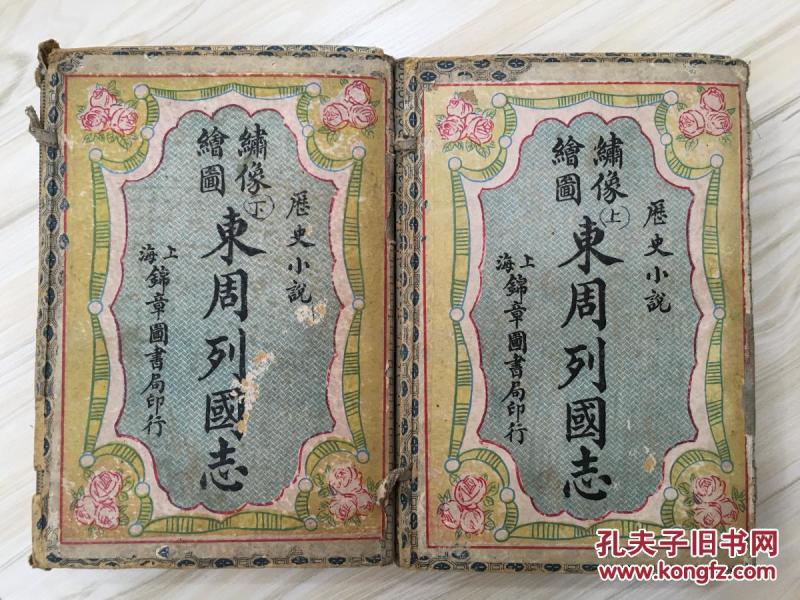 歷史小說
繡像
繪圖
上
東周列國志
上海
錦章圖書局印行
歷史小說
繡像
繪圖
下
東周列國志
上海
錦章圖書局印行
孔夫子旧书网
www.kongfz.com